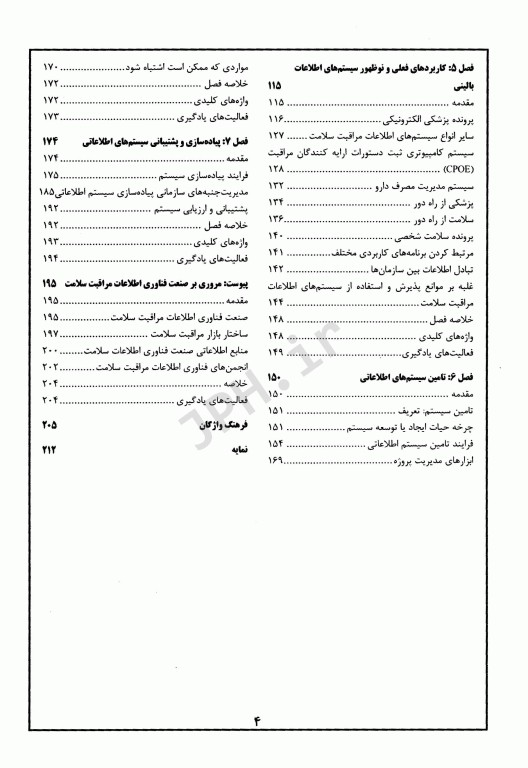 فصل ۵: کاربردهای فعلی و نوظهور سیستم‌های اطلاعات
بالینی ۱۱۵
مقدمه ........ ۱۱۵
پرونده پزشکی الکترونیکی ........ ۱۱۶
سایر انواع سیستم‌های اطلاعات مراقبت سلامت ....... ۱۲۷
سیستم کامپیوتری ثبت دستورات ارایه کنندگان مراقبت
(CPOE) ........ ۱۲۸
سیستم مدیریت مصرف دارو ........ ۱۳۲
پزشکی از راه دور ........ ۱۳۴
سلامت از راه دور ........ ۱۳۶
پرونده سلامت شخصی ........ ۱۴۰
مرتبط کردن برنامه‌های کاربردی مختلف ........ ۱۴۱
تبادل اطلاعات بین سازمان‌ها ........ ۱۴۲
غلبه بر موانع پذیرش و استفاده از سیستم‌های اطلاعات
مراقبت سلامت ........ ۱۴۴
خلاصه فصل ........ ۱۴۸
واژه‌های کلیدی ........ ۱۴۸
فعالیت‌های یادگیری ........ ۱۴۹
فصل ۶: تامین سیستم‌های اطلاعاتی ۱۵۰
مقدمه ........ ۱۵۰
تامین سیستم: تعریف ........ ۱۵۱
چرخه حیات ایجاد یا توسعه سیستم ........ ۱۵۱
فرایند تامین سیستم اطلاعاتی ........ ۱۵۴
ابزارهای مدیریت پروژه ........ ۱۶۹
مواردی که ممکن است اشتباه شود ........ ۱۷۰
خلاصه فصل ........ ۱۷۲
واژه‌های کلیدی ........ ۱۷۲
فعالیت‌های یادگیری ........ ۱۷۳
فصل ۷: پیاده‌سازی و پشتیبانی سیستم‌های اطلاعاتی ۱۷۴
مقدمه ........ ۱۷۴
فرایند پیاده‌سازی سیستم ........ ۱۷۵
مدیریت‌جنبه‌های سازمانی پیاده‌سازی سیستم اطلاعاتی۱۸۵
پشتیبانی و ارزیابی سیستم ........ ۱۹۲
خلاصه فصل ........ ۱۹۲
واژه‌های کلیدی ........ ۱۹۳
فعالیت‌های یادگیری ........ ۱۹۴
پیوست: مروری بر صنعت فناوری اطلاعات مراقبت سلامت ۱۹۵
مقدمه ........ ۱۹۵
صنعت فناوری اطلاعات مراقبت سلامت ........ ۱۹۵
ساختار بازار مراقبت سلامت ........ ۱۹۷
منابع اطلاعاتی صنعت فناوری اطلاعات سلامت ........ ۲۰۰
انجمن‌های فناوری اطلاعات مراقبت سلامت ........ ۲۰۲
خلاصه ........ ۲۰۴
فعالیت‌های یادگیری ........ ۲۰۴
فرهنگ واژگان ۲۰۵
نمایه ۲۱۲
JPH.ir
۴